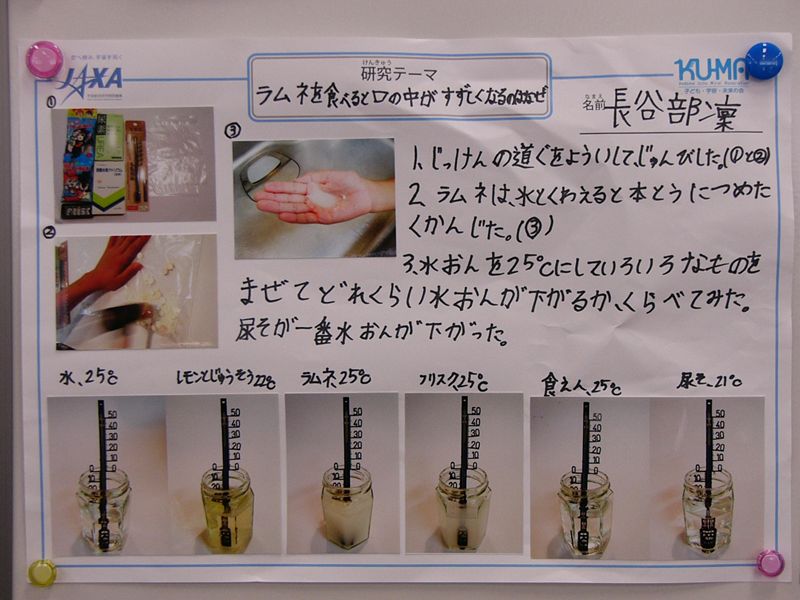 JAXA
けんきゅう
研究テーマ
ラムネを食べると口の中がすずしくなるのはなぜ
KUMA
子ども・宇宙・未来の会
なまえ
名前 長谷部凜
①
②
③
1.じっけんの道ぐをよういして、じゅんびした。(①と②)
2.ラムネは、水とくわえると本とうにつめた
くかんじた。(③)
3.水おんを25℃にしていろいろなものを
まぜてどれくらい水おんが下がるか、くらべてみた。
尿そが一番水おんが下がった。
水、25℃
レモンとじゅうそう22℃
ラムネ、25℃
フリスク、25℃
食えん、25℃
尿そ、21℃
50
40
30
20
10
0
10
20
50
40
30
20
10
0
10
20
50
40
30
20
10
0
10
20
50
40
30
20
10
0
10
20
50
40
30
20
10
0
10
20
50
40
30
20
10
0
10
20